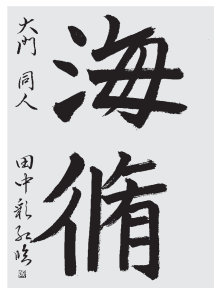 海脩
大門 同人 田中彩紅臨